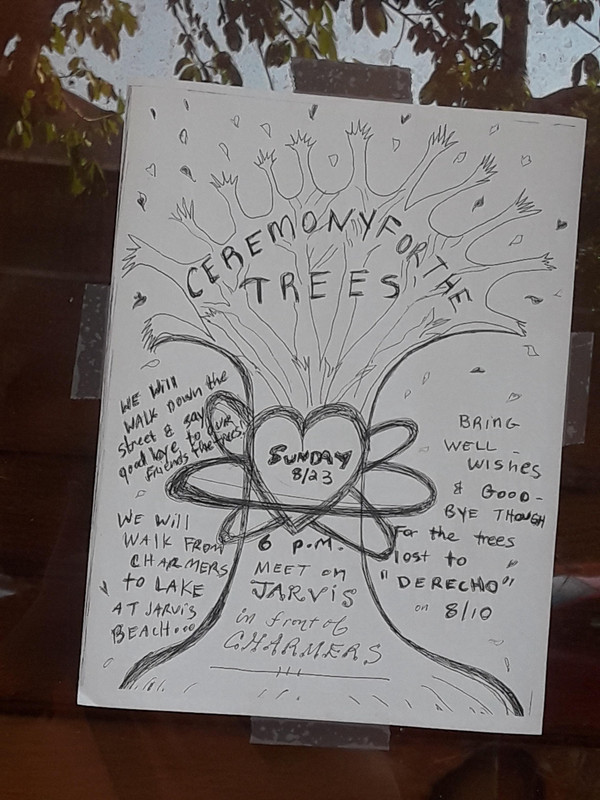 CEREMONY FOR THE
TREES
WE Will
WALK DOWN the
street & say
good bye to OUR
friends the trees!
WE Will
WALK FROM
CHARMERS
to LAKE
AT JARVIS
BEACH...
SUNDAY
8/23
6 p.m.
MEET on
JARVIS
in front of
CHARMERS
BRING
WELL -
Wishes
& GOOD-
BYE THOUGH
For the trees
lost to
"DERECHO"
on 8/10